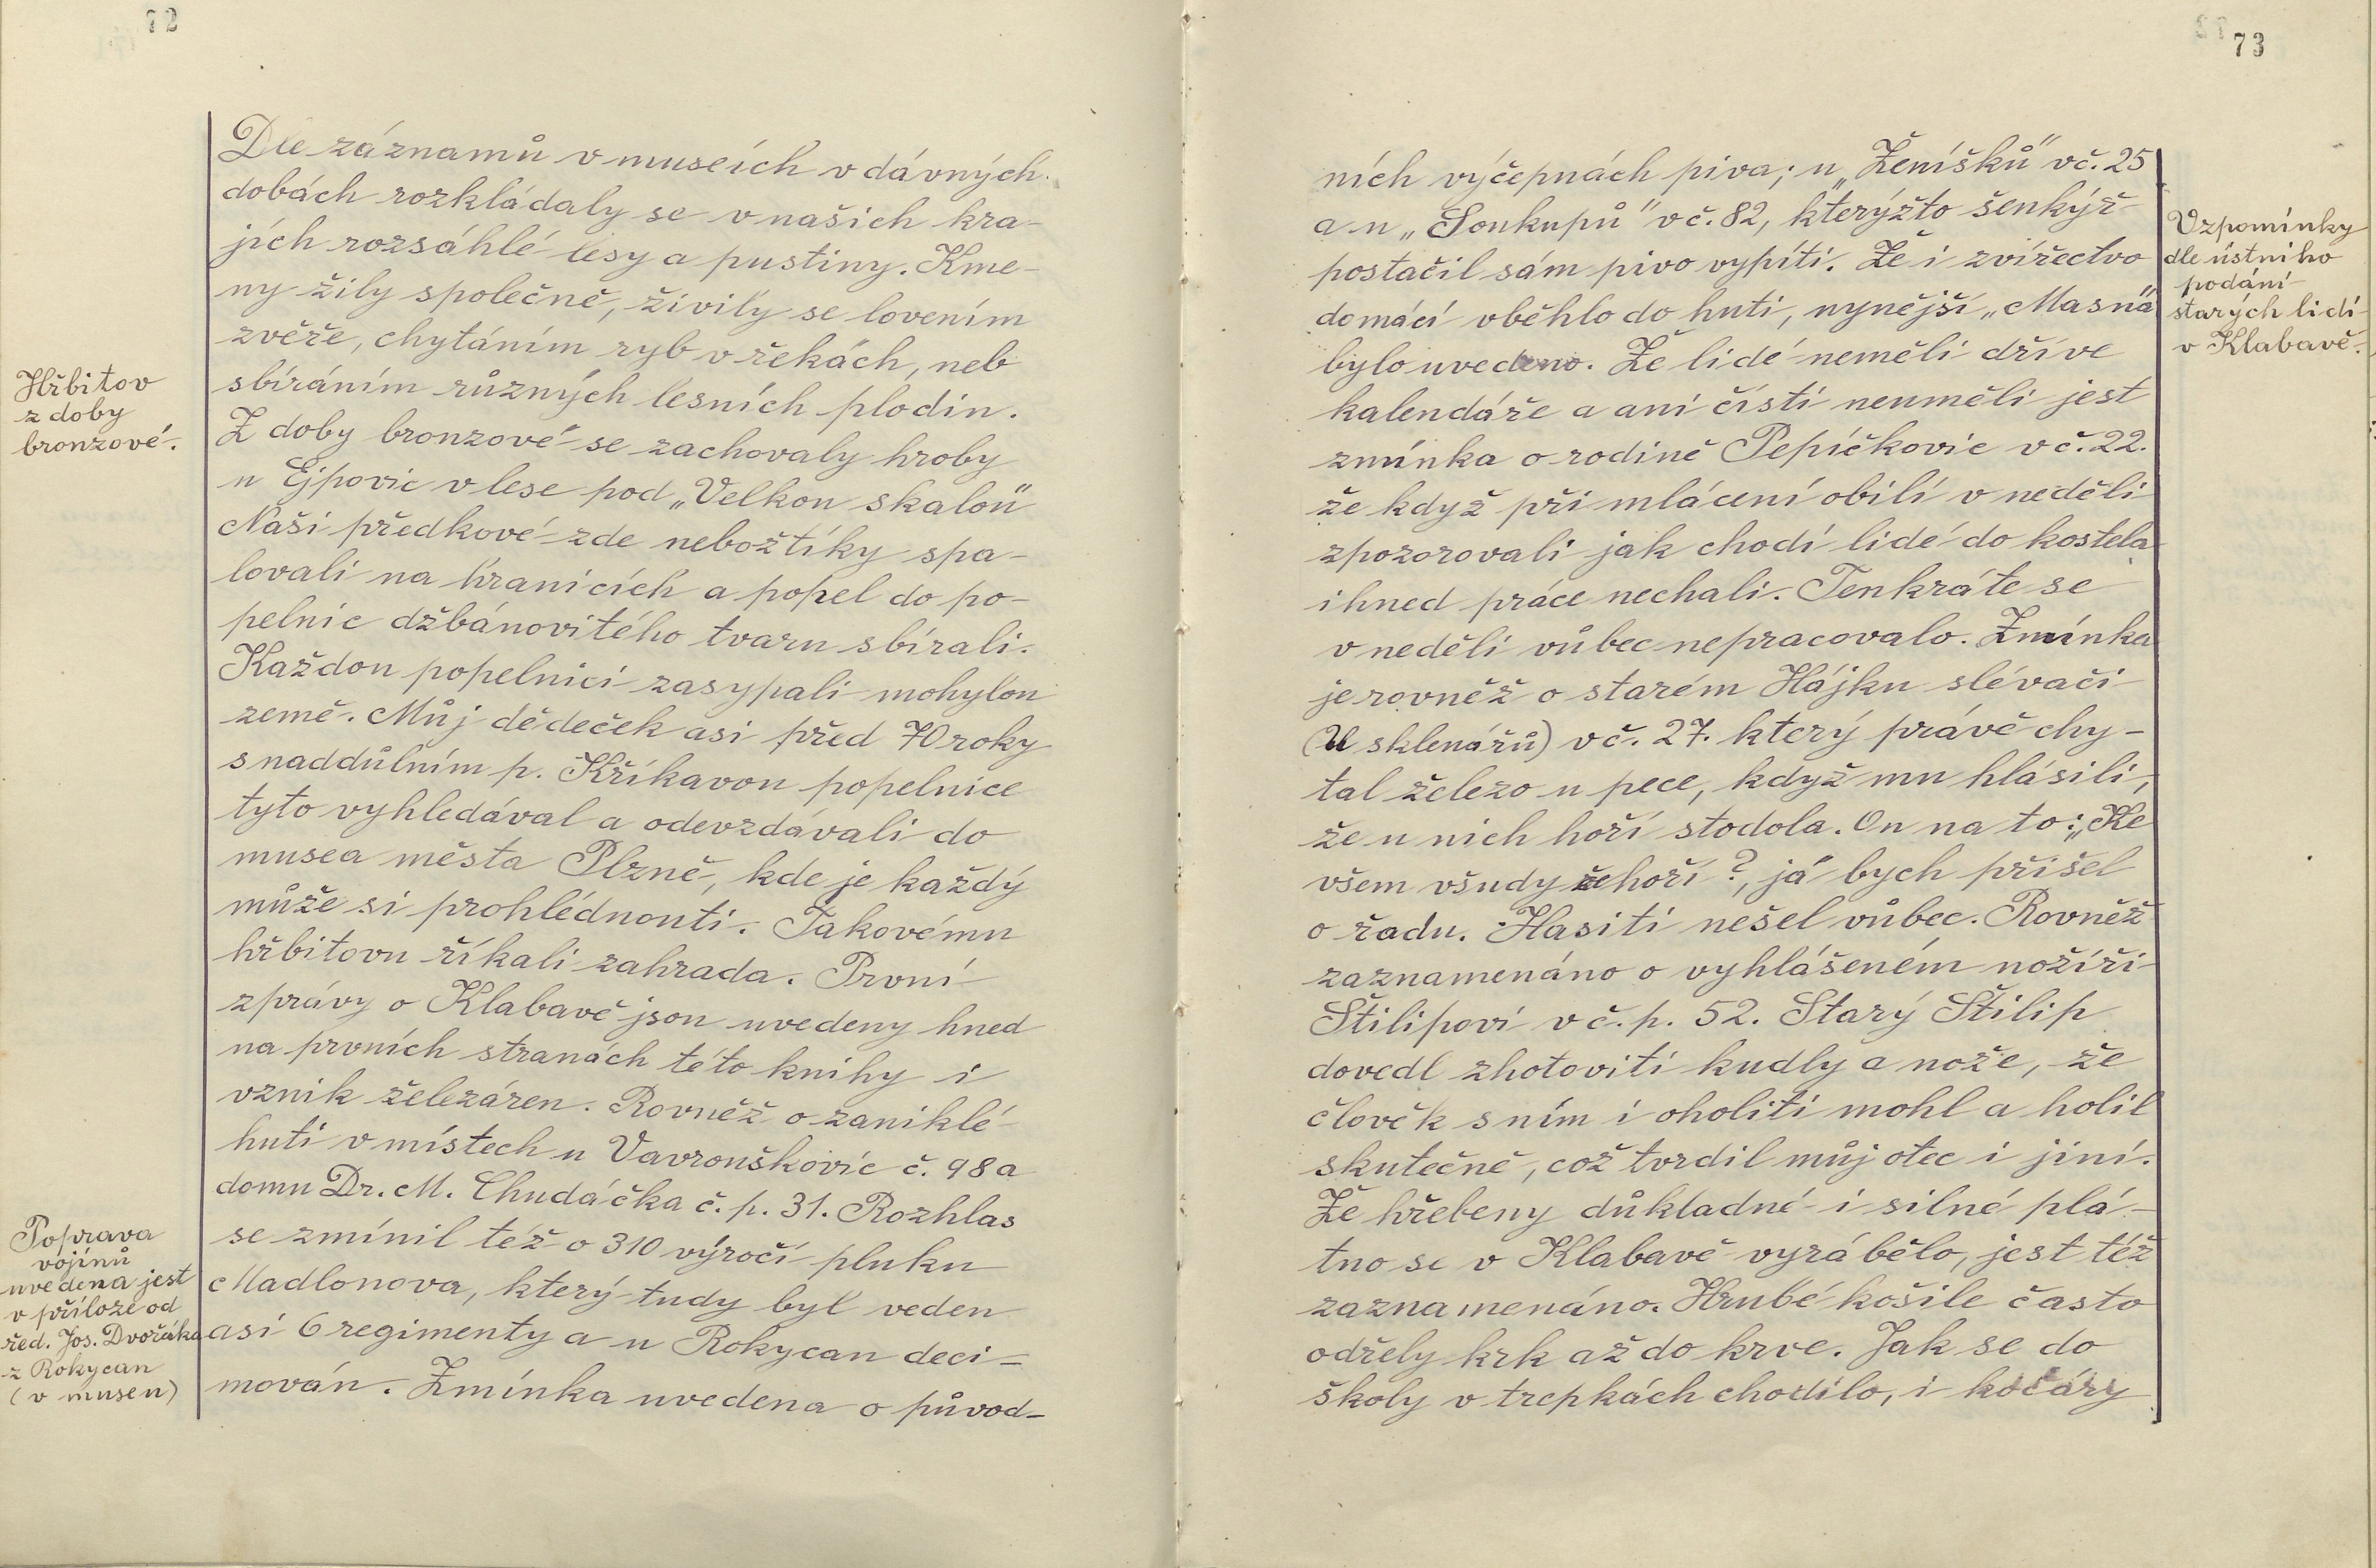 72
Dle záznamů v museích v dávných
dobách rozkládaly se v našich kra-
jích rozsáhlé lesy a pustiny. Kme-
ny žily společně, živily se lovením
zvěře, chytáním ryb v řekách, neb
sbíráním různých lesních plodin.
Hřbitov
z doby
bronzové.
Z doby bronzové se zachovaly hroby
u Ejpovic v lese pod „Velkou skalou"
Naši předkové zde nebožtíky spa-
lovali na hranicích a popel do po-
pelnic džbánovitého tvaru sbírali.
Každou popelnici zasypali mohylou
země. Můj dědeček asi před 70 roky
s naddůlním p. Kříkavou popelnice
tyto vyhledával a odevzdávali do
musea města Plzně, kde je každý
může si prohlédnouti. Takovému
hřbitovu říkali zahrada. První
zprávy o Klabavě jsou uvedeny hned
na prvních stranách této knihy i
vznik železáren. Rovněž o zaniklé
huti v místech u Vavrouškovic č. 98 a
domu Dr. M. Chudáčka č. p. 31. Rozhlas
se zmínil též o 310 výročí pluku
Madlonova, který tudy byl veden
asi 6 regimenty a u Rokycan deci-
mován. Zmínka uvedena o původ-
Poprava
vojínů
uvedena jest
v příloze od
řed. Jos. Dvořáka
z Rokycan
(v museu)
73
ních výčepnách piva; u „Ženíšků" v č. 25
a u „Soukupů" v č. 82, kterýžto šenkýř
postačil sám pivo vypíti. Že i zvířectvo
domácí vběhlo do huti, nynější „Masná"
bylo uvedeno. Že lidé neměli dříve
kalendáře a ani čísti neuměli jest
zmínka o rodině Pepíčkovic v č. 22.
že když při mlácení obilí v neděli
zpozorovali jak chodí lidé do kostela
ihned práce nechali. Tenkráte se
v neděli vůbec nepracovalo. Zmínka
je rovněž o starém Hájku slévači
(U sklenářů) v č. 27. který právě chy-
tal železo u pece, když mu hlásili,
že u nich hoří stodola. On na to: „Ke
všem všudy že hoří?, já bych přišel
o řadu. Hasiti nešel vůbec. Rovněž
zaznamenáno o vyhlášeném nožíři
Štilipovi v č. p. 52. Starý Štilip
dovedl zhotoviti kudly a nože, že
člověk s ním i oholiti mohl a holil
skutečně, což tvrdil můj otec i jiní.
Že hřebeny důkladné i silné plá-
tno se v Klabavě vyrábělo, jest též
zaznamenáno. Hrubé košile často
odřely krk až do krve. Jak se do
školy v trepkách chodilo, i kočáry
Vzpomínky
dle ústního
podání
starých lidí
v Klabavě.